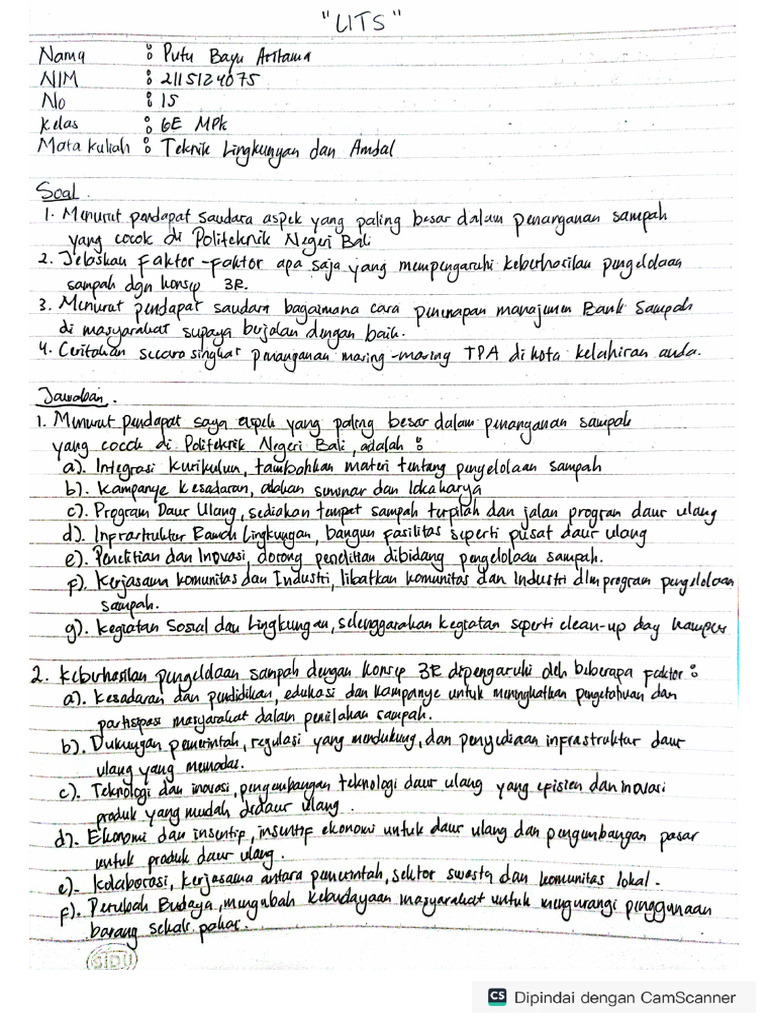 "UTS"
Nama : Putu Bayu Aritama
NIM : 2115124075
No : 15
Kelas : 6E MPK
Mata Kuliah : Teknik Lingkungan dan Amdal
Soal.
1. Menurut pendapat saudara aspek yang paling besar dalam penanganan sampah
yang cocok di Politeknik Negeri Bali
2. Jelaskan faktor-faktor apa saja yang mempengaruhi keberhasilan pengelolaan
sampah dgn konsep 3R.
3. Menurut pendapat saudara bagaimana cara penerapan manajemen Bank Sampah
di masyarakat supaya berjalan dengan baik.
4. Ceritakan secara singkat penanganan masing-masing TPA di kota kelahiran anda.
Jawaban.
1. Menurut pendapat saya aspek yang paling besar dalam penanganan sampah
yang cocok di Politeknik Negeri Bali, adalah :
a). Integrasi Kurikulum, tambahkan materi tentang pengelolaan sampah
b). Kampanye Kesadaran, adakan seminar dan lokakarya
c). Program Daur Ulang, sediakan tempat sampah terpilah dan jalan program daur ulang
d). Infrastruktur Ramah Lingkungan, bangun fasilitas seperti pusat daur ulang
e). Penelitian dan Inovasi, dorong penelitian dibidang pengelolaan sampah.
f). Kerjasama komunitas dan Industri, libatkan komunitas dan Industri dlm program pengelolaan
sampah.
g). Kegiatan Sosial dan Lingkungan, selenggarakan kegiatan seperti clean-up day kampus
2. Keberhasilan pengelolaan sampah dengan konsep 3R dipengaruhi oleh beberapa faktor :
a). Kesadaran dan pendidikan, edukasi dan kampanye untuk meningkatkan pengetahuan dan
partisipasi masyarakat dalam pemilahan sampah.
b). Dukungan pemerintah, regulasi yang mendukung, dan penyediaan infrastruktur daur
ulang yang memadai.
c). Teknologi dan inovasi, pengembangan teknologi daur ulang yang efisien dan inovasi
produk yang mudah didaur ulang.
d). Ekonomi dan insentif, insentif ekonomi untuk daur ulang dan pengembangan pasar
untuk produk daur ulang.
e). Kolaborasi, kerjasama antara pemerintah, sektor swasta dan komunitas lokal.
f). Perubah Budaya, mengubah kebudayaan masyarakat untuk mengurangi penggunaan
barang sekali pakai.
SIDU
CS Dipindai dengan CamScanner